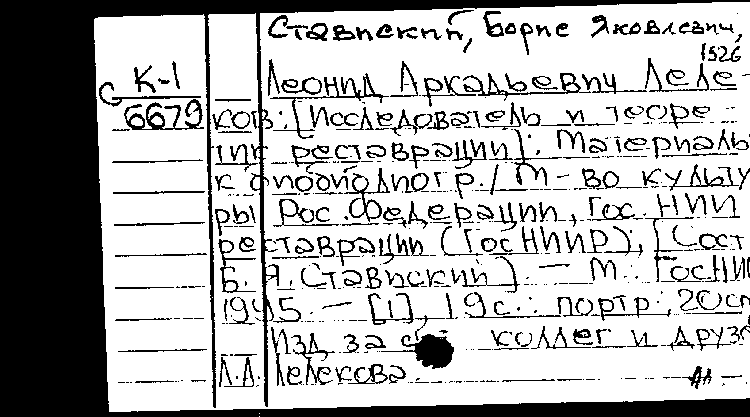 Ставиский, Борис Яковлевич,
1926
К-1
6679
Леонид Аркадьевич Леле-
ков: [Исследователь и теоре-
тик реставрации]: Материалы
к биобиблиогр. / М-во культу
ры Рос. Федерации, Гос. НИИ
реставрации (ГосНИИР); [Сост
Б. Я. Ставиский]. — М.: ГосНИИ
1995. — [1], 19 с.: портр.; 20 см
Изд. за коллег и друзе
Л.А. Лелекова.